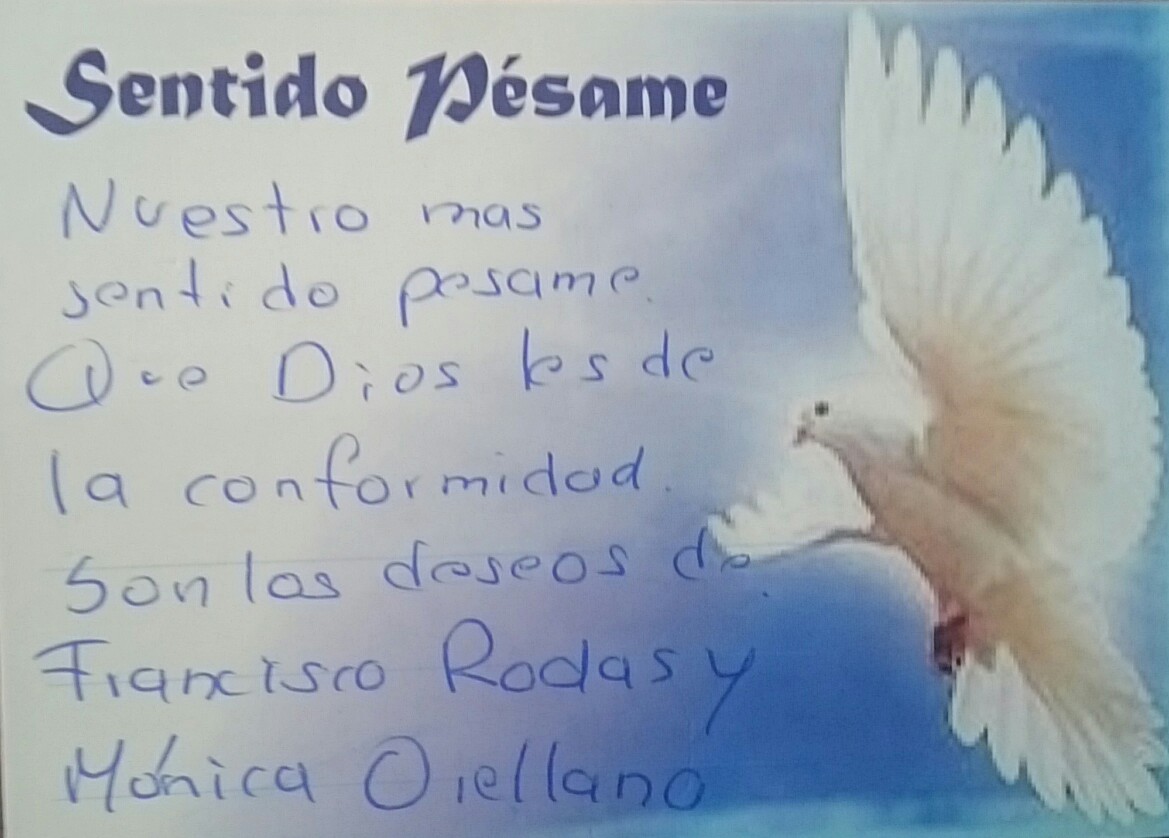 Sentido Pésame
Nuestro mas
sentido pesame.
Que Dios les de
la conformidad.
Son los deseos de.
Francisco Rodas y
Mónica Orellano